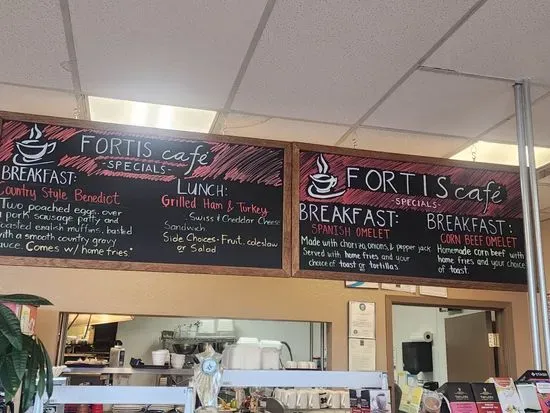 FORTIS café
-SPECIALS-
BREAKFAST:
Country Style Benedict
Two poached eggs, over
a pork sausage patty and
toasted english muffins, basted
with a smooth country gravy
sauce. Comes w/ home fries*
LUNCH:
Grilled Ham & Turkey
Swiss & Cheddar Cheese
Sandwich
Side Choices- Fruit, coleslaw
or Salad
FORTIS café
-SPECIALS-
BREAKFAST:
SPANISH OMELET
Made with chorizo, onions, & pepper jack
Served with home fries and your
choice of toast or tortillas.
BREAKFAST:
CORN BEEF OMELET
Homemade corn beef with
home fries and your choice
of toast.